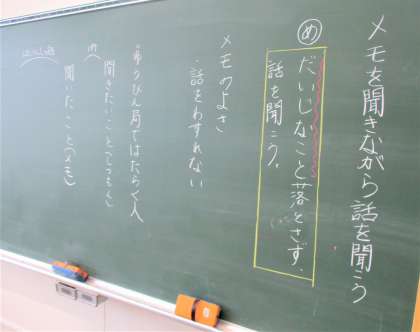 メモを聞きながら話を聞こう
め
だいじなこと落とさず、
話を聞こう。
メモのよさ
・話をわすれない
・ゆうびん局ではたらく人
聞きたいこと(しつもん)
聞いたこと(メモ)